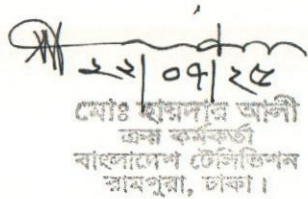 ২২|০৭|২৫
মোঃ হায়দার আলী
ক্রয় কর্মকর্তা
বাংলাদেশ টেলিভিশন
রামপুরা, ঢাকা।